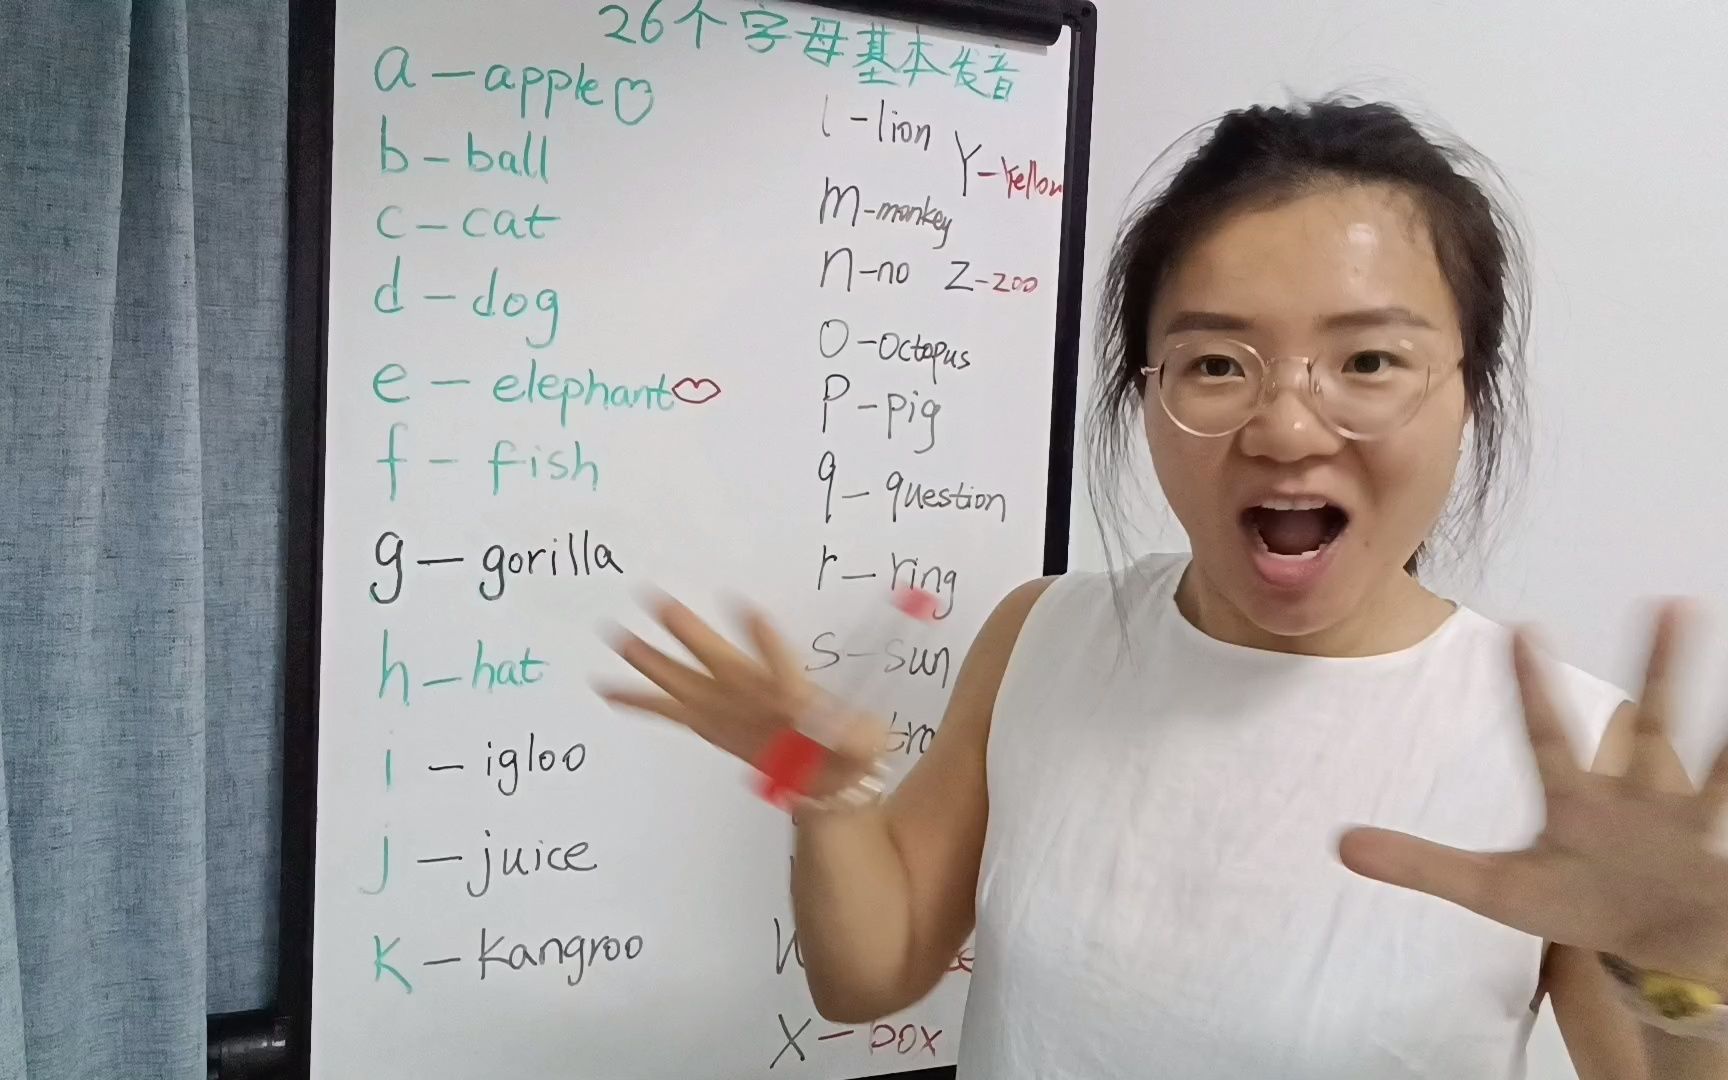 26个字母基本发音
a – apple
b – ball
c – cat
d – dog
e – elephant
f – fish
g – gorilla
h – hat
i – igloo
j – juice
k – kangroo
l – lion
m – monkey
n – no
o – octopus
p – pig
q – question
r – ring
s – sun
x – box
Y – Yellow
Z – zoo